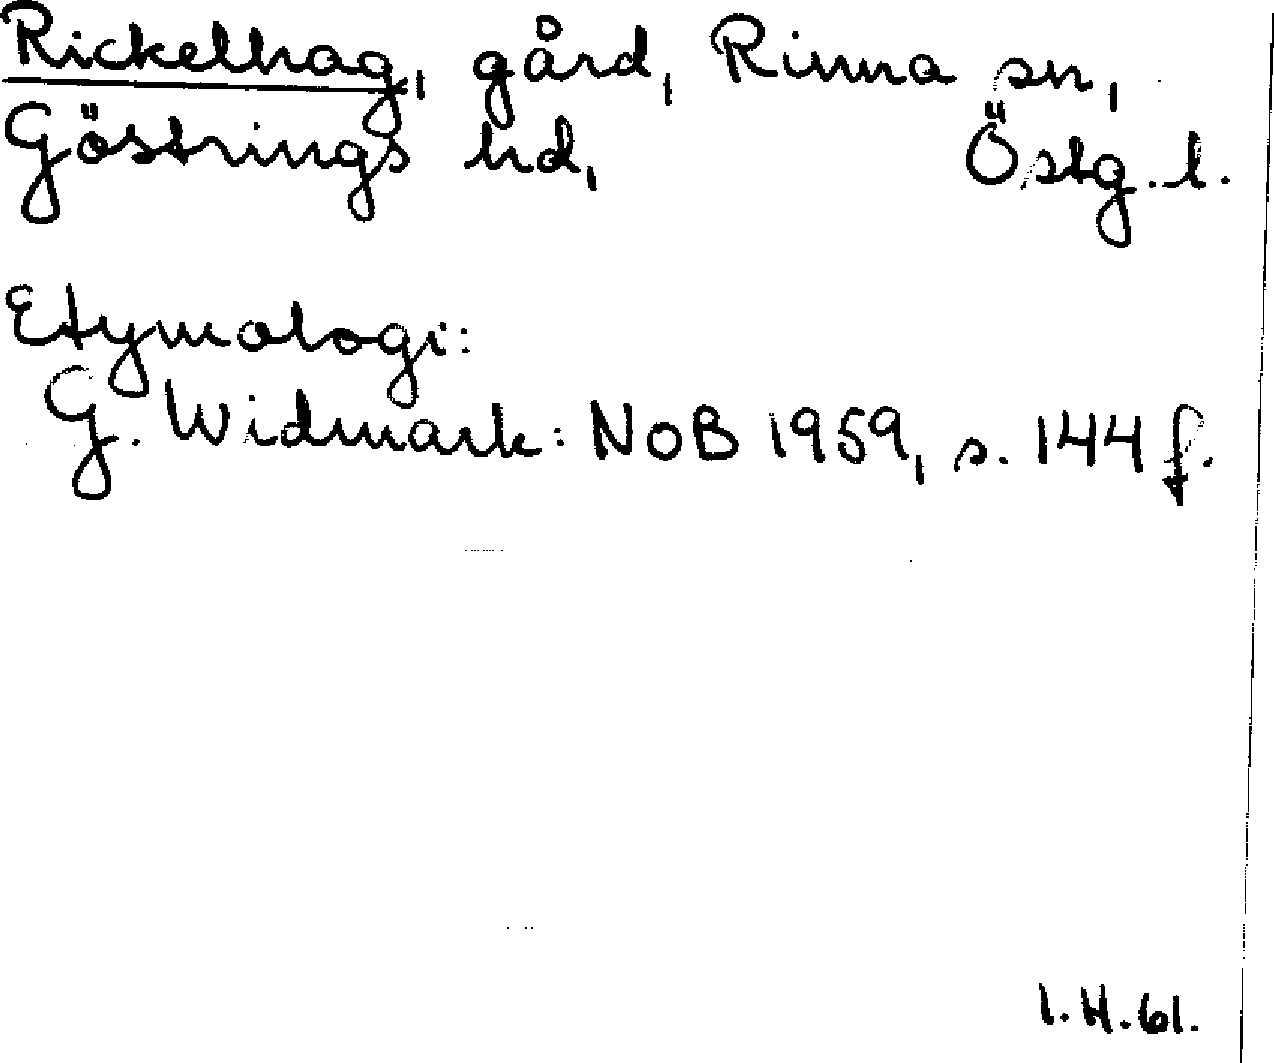 Rickelhag, gård, Rinna sn,
Göstrings hd, Östg. l.
Etymologi:
G. Widmark: NoB 1959, s. 144 f.
I. H. 61.